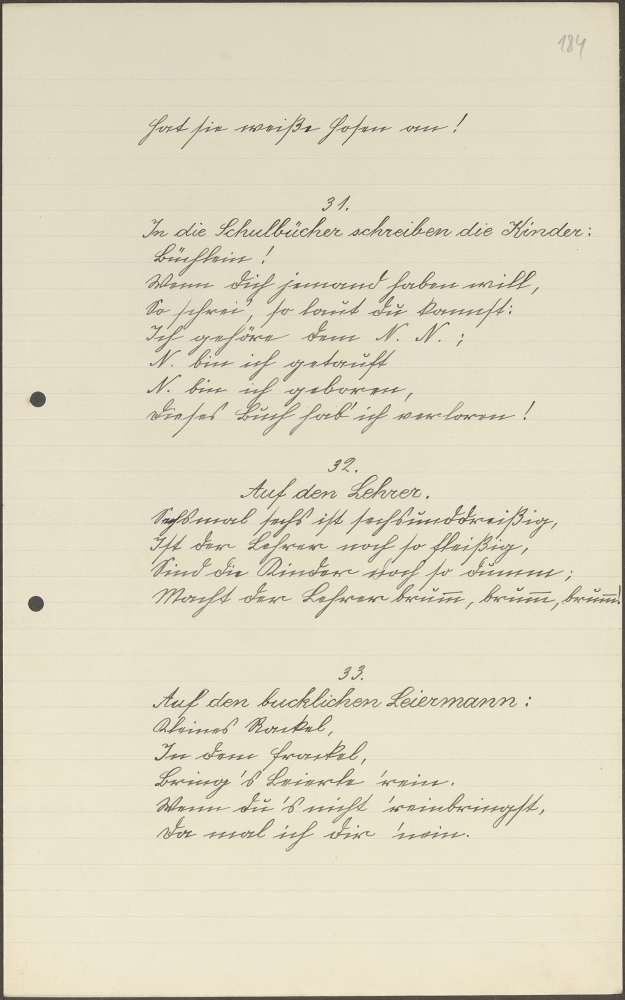 184
hat sie weiße Hosen an!
31.
In die Schulbücher schreiben die Kinder:
Büchlein!
Wenn dich jemand haben will,
So schrei', so laut du kannst:
Ich gehöre dem N. N.;
N. bin ich getauft
N. bin ich geboren,
Dieses Buch hab' ich verloren!
32.
Auf den Lehrer.
Sechsmal sechs ist sechsunddreißig,
Ist der Lehrer noch so fleißig,
Sind die Kinder noch so dumm;
Macht der Lehrer brum̅, brum̅, brum̅!
33.
Auf den bucklichen Leiermann:
Kleines
In dem Frackel,
Bring's Leierle 'rein.
Wenn du's nicht 'reinbringst,
Da mal ich dir 'nein.